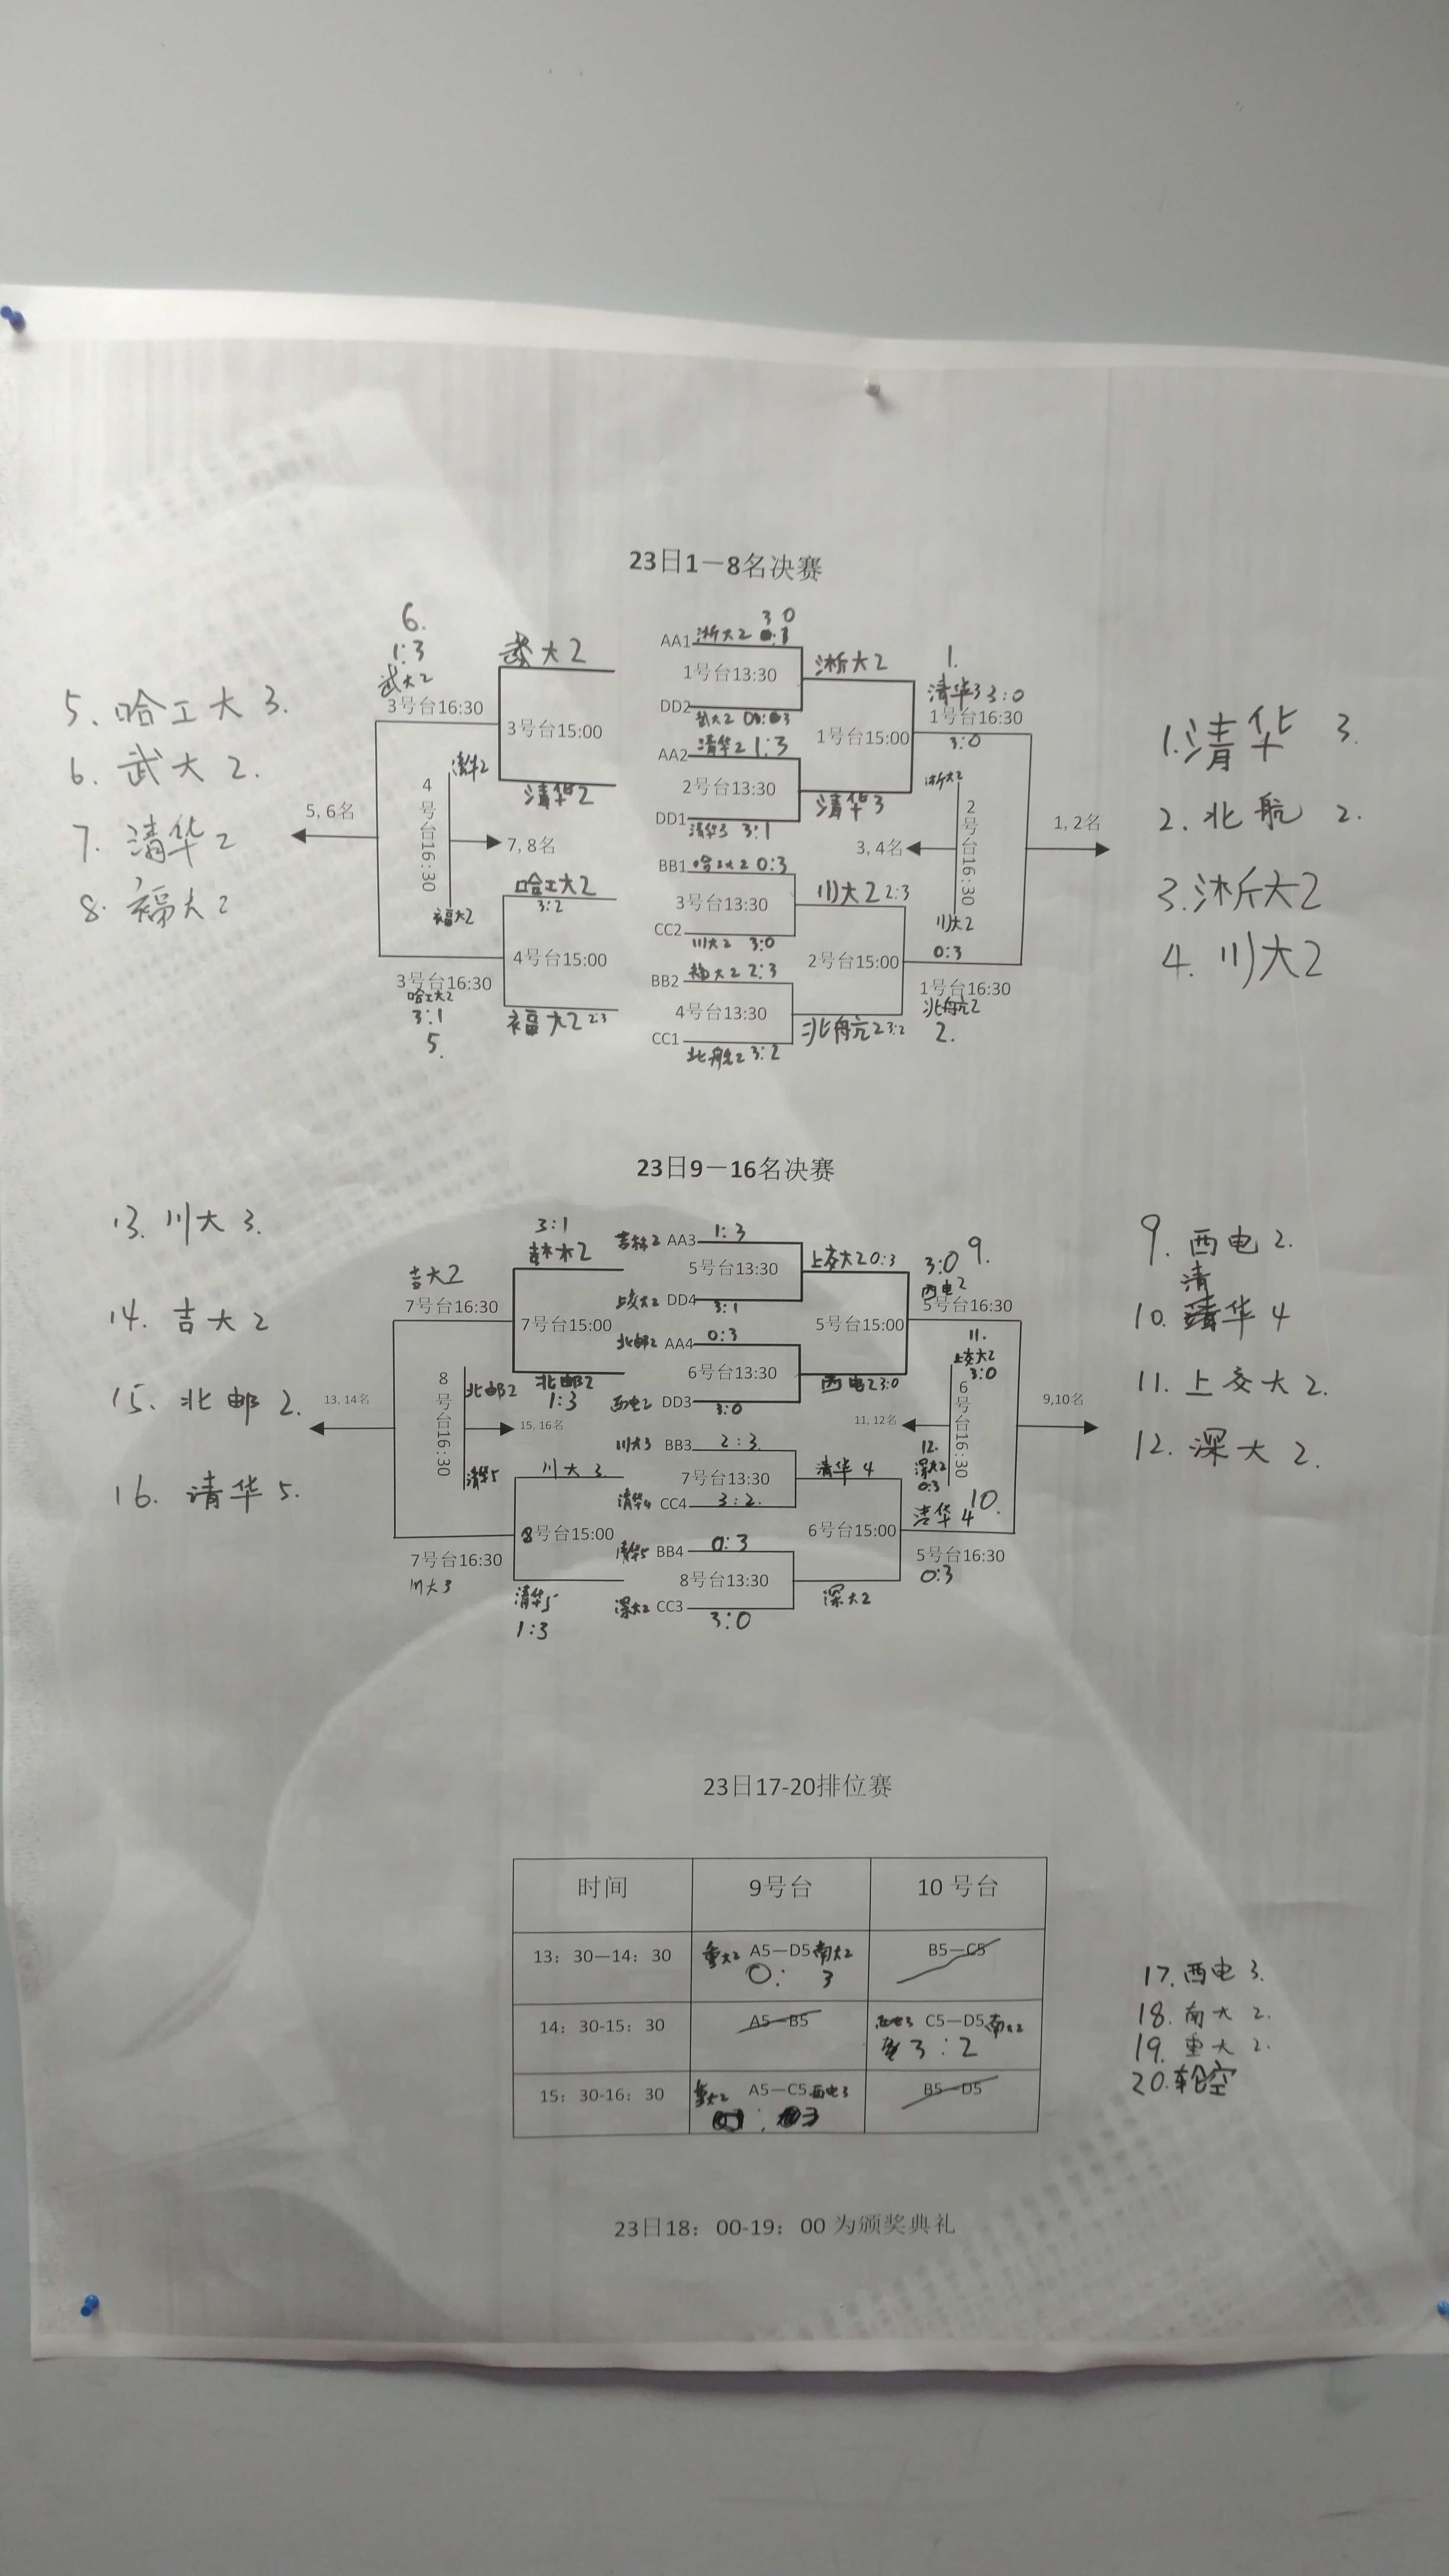 23日1－8名决赛
6.
1:3
武大2
3号台16:30
武大2
3号台15:00
清华2
清华2
4号台16:30
福大2
5, 6名
7, 8名
哈工大2
3:2
4号台15:00
福大2 2:3
3号台16:30
哈工大2
3:1
5.
5. 哈工大3.
6. 武大2.
7. 清华2
8. 福大2
3 0
AA1 浙大2
1号台13:30
DD2 武大2
AA2 清华2 1:3
2号台13:30
DD1 清华3 3:1
BB1 哈工大2 0:3
3号台13:30
CC2 川大2 3:0
BB2 福大2 2:3
4号台13:30
CC1 北航2 3:2
浙大2
1号台15:00
清华3
川大2 2:3
2号台15:00
北航2 3:2
1.
清华3 3:0
1号台16:30
3:0
浙大2
2号台16:30
川大2
3, 4名
1, 2名
0:3
1号台16:30
北航2
2.
1. 清华3.
2. 北航2.
3. 浙大2
4. 川大2
23日9－16名决赛
13. 川大3.
14. 吉大2
15. 北邮2.
16. 清华5.
吉大2
7号台16:30
3:1
吉林2
7号台15:00
北邮2
1:3
北邮2
8号台16:30
清华5
13, 14名
15, 16名
川大3
8号台15:00
清华5
1:3
7号台16:30
川大3
吉林2 AA3 1:3
5号台13:30
上交大2 DD4 3:1
北邮2 AA4 0:3
6号台13:30
西电2 DD3 3:0
川大3 BB3 2:3
7号台13:30
清华4 CC4 3:2.
清华5 BB4 0:3
8号台13:30
深大2 CC3 3:0
上交大2 0:3
5号台15:00
西电2 3:0
清华4
6号台15:00
深大2
3:0 9.
西电2
5号台16:30
11.
上交大2
3:0
6号台16:30
11, 12名
9,10名
12.
深大2
0:3
清华4 10.
5号台16:30
0:3
9. 西电2.
清
10. 清华4
11. 上交大2.
12. 深大2.
23日17-20排位赛
时间 9号台 10 号台
13：30—14：30 重大2 A5—D5 南大2 B5—C5
0: 3
14：30-15：30 A5—B5 西电3 C5—D5 南大2
3:2
15：30-16：30 重大2 A5—C5 西电3 B5—D5
: 3
17. 西电3.
18. 南大2.
19. 重大2.
20. 轮空
23日18：00-19：00 为颁奖典礼